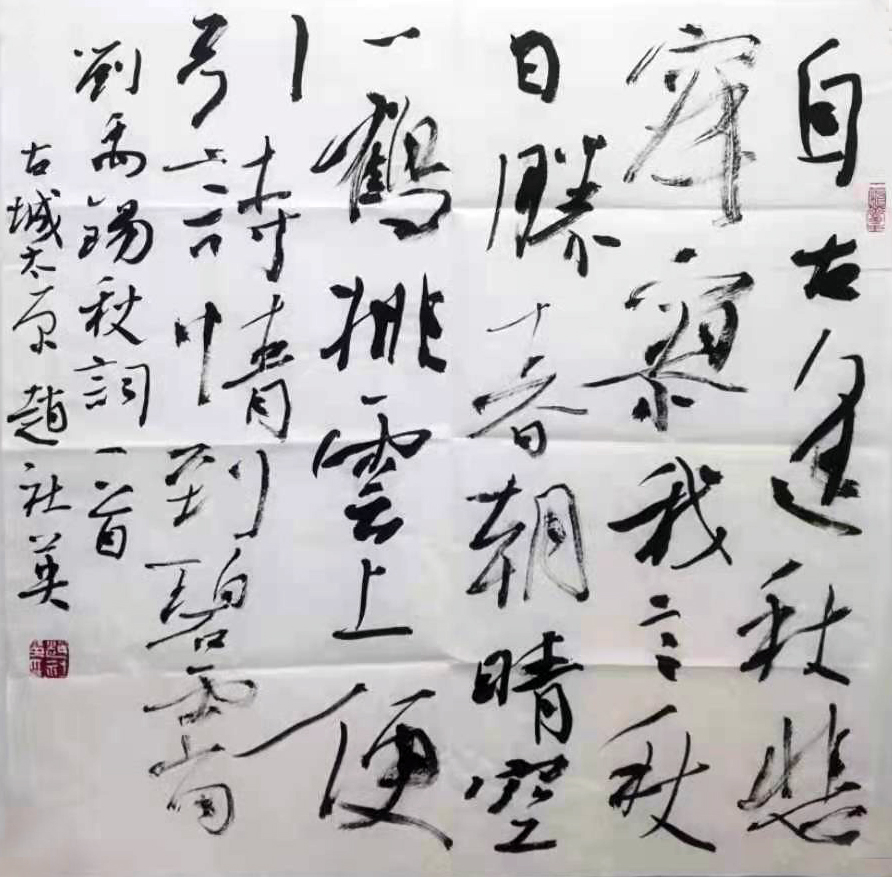 自古逢秋悲
寂寥我言秋
日勝春朝晴空
一鶴排雲上便
引詩情到碧霄
劉禹錫秋詞一首
古城太原趙社英